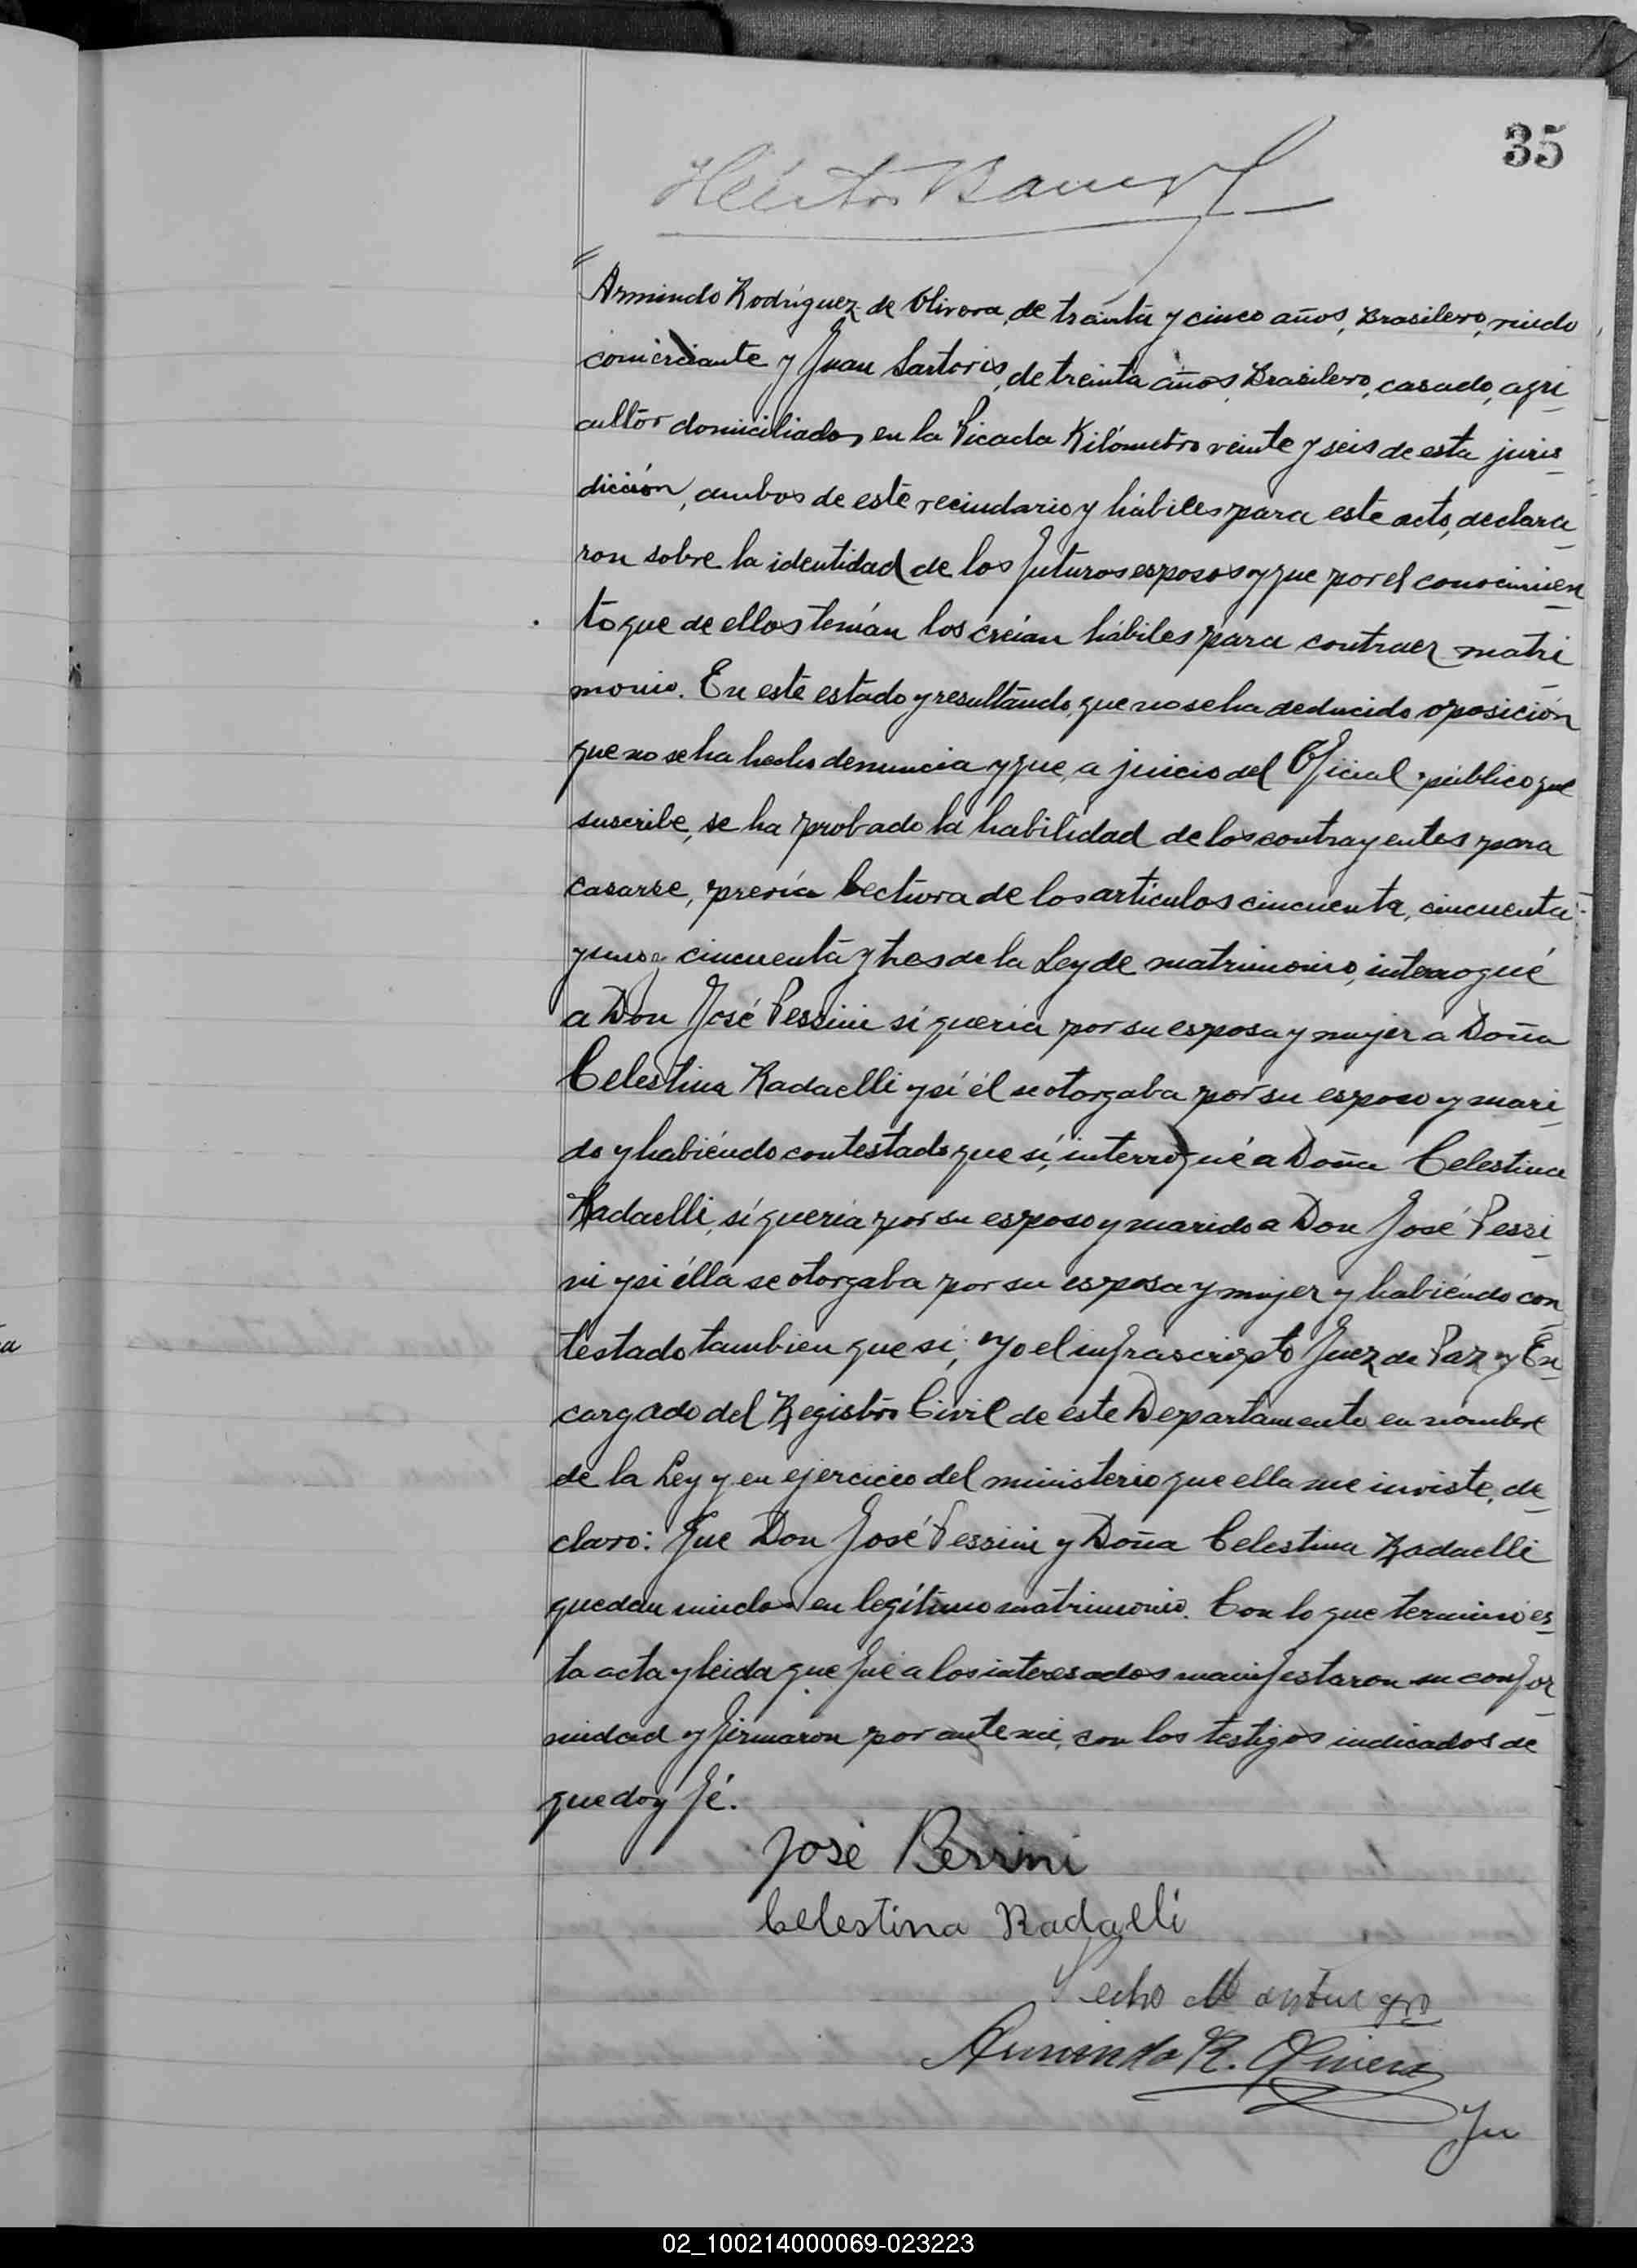 35
Héctor
Armindo Rodríguez de Olivera, de treinta y cinco años, Brasilero, viudo
comerciante y Juan Sartoris, de treinta años, Brasilero, casado, agri
cultor domiciliados en la Picada Kilómetro veinte y seis de esta juris
dicción, ambos de este vecindario y hábiles para este acto, declara
ron sobre la identidad de los futuros esposos y que por el conocimien
to que de ellos tenían los creían hábiles para contraer matri
monio. En este estado y resultando, que no se ha deducido oposición
que no se ha hecho denuncia y que, a juicio del Oficial público que
suscribe, se ha probado la habilidad de los contrayentes para
casarse, previa lectura de los artículos cincuenta, cincuenta
y uno y cincuenta y tres de la Ley de matrimonio, interrogué
a Don José Pessini si quería por su esposa y mujer a Doña
Celestina Radaelli y si él se otorgaba por su esposo y mari
do y habiéndo contestado que sí, interrogué a Doña Celestina
Radaelli, si quería por su esposo y marido a Don José Pessi
ni y si élla se otorgaba por su esposa y mujer y habiéndo con
testado tambien que si; yo el infrascripto Juez de Paz y En
cargado del Registro Civil de este Departamento en nombre
de la Ley y en ejercicio del ministerio que ella me inviste, de
claro: Que Don José Pessini y Doña Celestina Radaelli
quedan unidos en legítimo matrimonio. Con lo que terminó es
ta acta y leida que fué a los interesados manifestaron su confor
midad y firmaron por ante mi, con los testigos indicados de
que doy fé.
José Perrini
Celestina Radaelli
Armindo R. Olivera
Ju
02_100214000069-023223